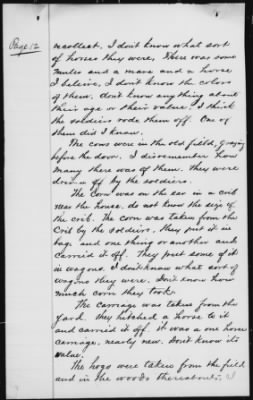 Page 12
recollect. I don't know what sort
of horses they were. There was some
mules and a mare and a horse
I believe, I don't know the colors
of them. don't know anything about
their age or their value. I think
the soldiers rode them off. One of
them did I know.
The cows were in the old field, grazing
before the door. I disremember how
many there was of them. they were
driven off by the soldiers.
The Corn was on the ear in a crib
near the house. do not know the size of
the crib. The corn was taken from the
Crib by the soldiers. they put it in
bags and one thing or another and
carried it off. They put some of it
in wagons. I don't know what sort of
wagons they were. Don't know how
much corn they took.
The Carriage was taken from the
yard. they hitched a horse to it
and carried it off. it was a one horse
carriage, nearly new. Don't know its
value.
The hogs were taken from the field
and in the woods thereabouts. I